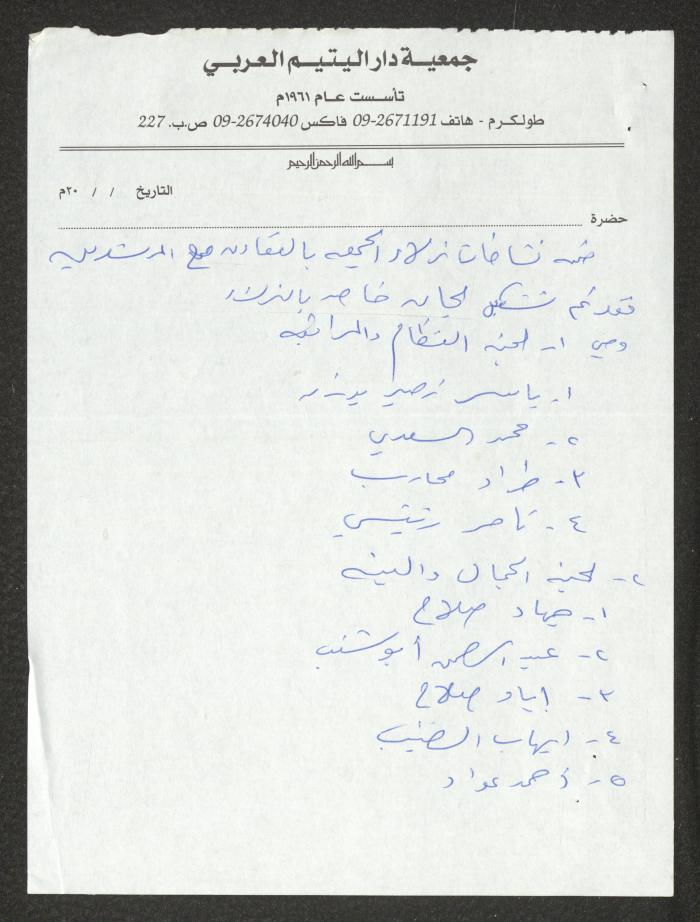 جمعية دار اليتيم العربي
تأسست عام ١٩٦١م
طولكرم - هاتف 2671191-09 فاكس 2674040-09 ص.ب. 227
بسم الله الرحمن الرحيم
التاريخ / / ٢٠م
حضرة
ضمن نشاطات نزلاء الجمعيه بالتعاون مع المرشدين
فقد تم تشكيل لجان خاصه بالنزلاء
وهي ١- لجنة النظام والمراقبه
١- ياسر نصير
٢- محمد السعدي
٣- طراد محارب
٤- ناصر
٢- لجنة الجمال والبيئه
١- جهاد صلاح
٢- عبد الرحمن أبو شنب
٣- اياد صلاح
٤- ايهاب
٥- أحمد عواد